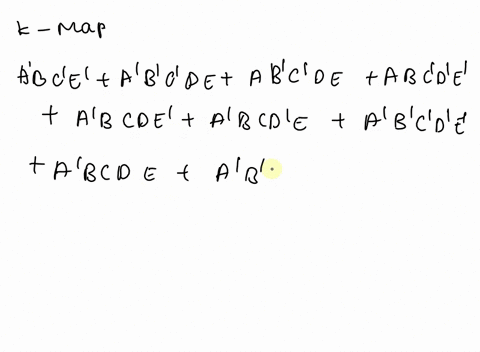 K-Map
A'BC'E' + A'B'C'DE + AB'C'DE + ABC'D'E'
+ A'BCDE' + A'BCD'E + A'B'C'D'E'
+ A'BCDE + A'B'